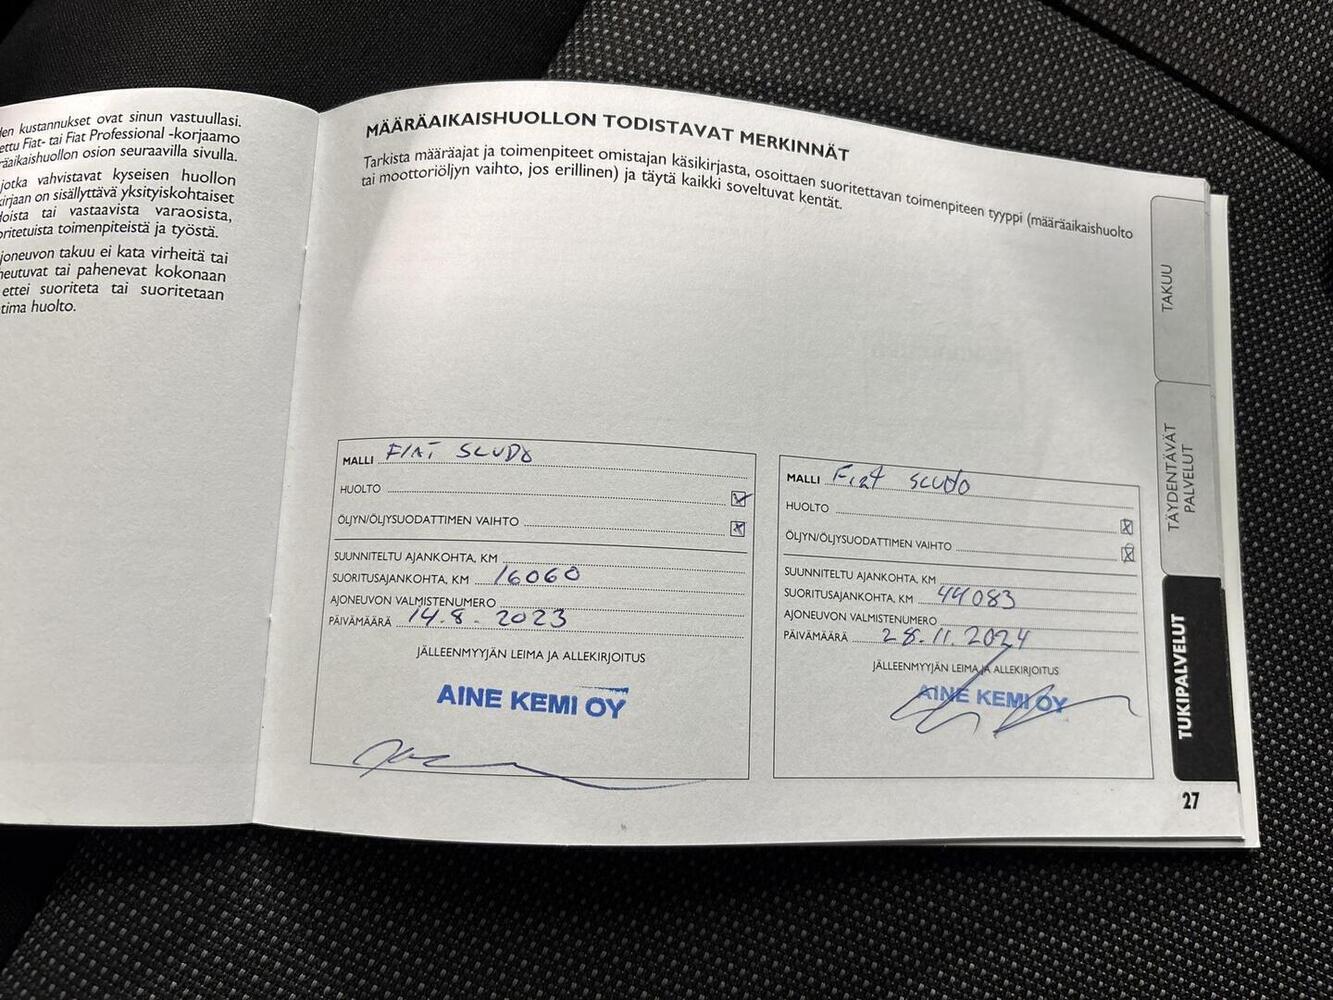 len kustannukset ovat sinun vastuullasi.
ettu Fiat- tai Fiat Professional -korjaamo
räaikaishuollon osion seuraavilla sivulla.
jotka vahvistavat kyseisen huollon
kirjaan on sisällyttävä yksityiskohtaiset
loista tai vastaavista varaosista,
oritetuista toimenpiteistä ja työstä.
joneuvon takuu ei kata virheitä tai
heutuvat tai pahenevat kokonaan
ettei suoriteta tai suoritetaan
tima huolto.
MÄÄRÄAIKAISHUOLLON TODISTAVAT MERKINNÄT
Tarkista määräajat ja toimenpiteet omistajan käsikirjasta, osoittaen suoritettavan toimenpiteen tyyppi (määräaikaishuolto
tai moottoriöljyn vaihto, jos erillinen) ja täytä kaikki soveltuvat kentät.
MALLI FIAT SCUDO
HUOLTO
ÖLJYN/ÖLJYSUODATTIMEN VAIHTO
SUUNNITELTU AJANKOHTA, KM
SUORITUSAJANKOHTA, KM 16060
AJONEUVON VALMISTENUMERO
PÄIVÄMÄÄRÄ 14.8.2023
JÄLLEENMYYJÄN LEIMA JA ALLEKIRJOITUS
AINE KEMI OY
MALLI Fiat scudo
HUOLTO
ÖLJYN/ÖLJYSUODATTIMEN VAIHTO
SUUNNITELTU AJANKOHTA, KM
SUORITUSAJANKOHTA, KM 44083
AJONEUVON VALMISTENUMERO
PÄIVÄMÄÄRÄ 28.11.2024
JÄLLEENMYYJÄN LEIMA JA ALLEKIRJOITUS
AINE KEMI OY
TAKUU
TÄYDENTÄVÄT
PALVELUT
TUKIPALVELUT
27